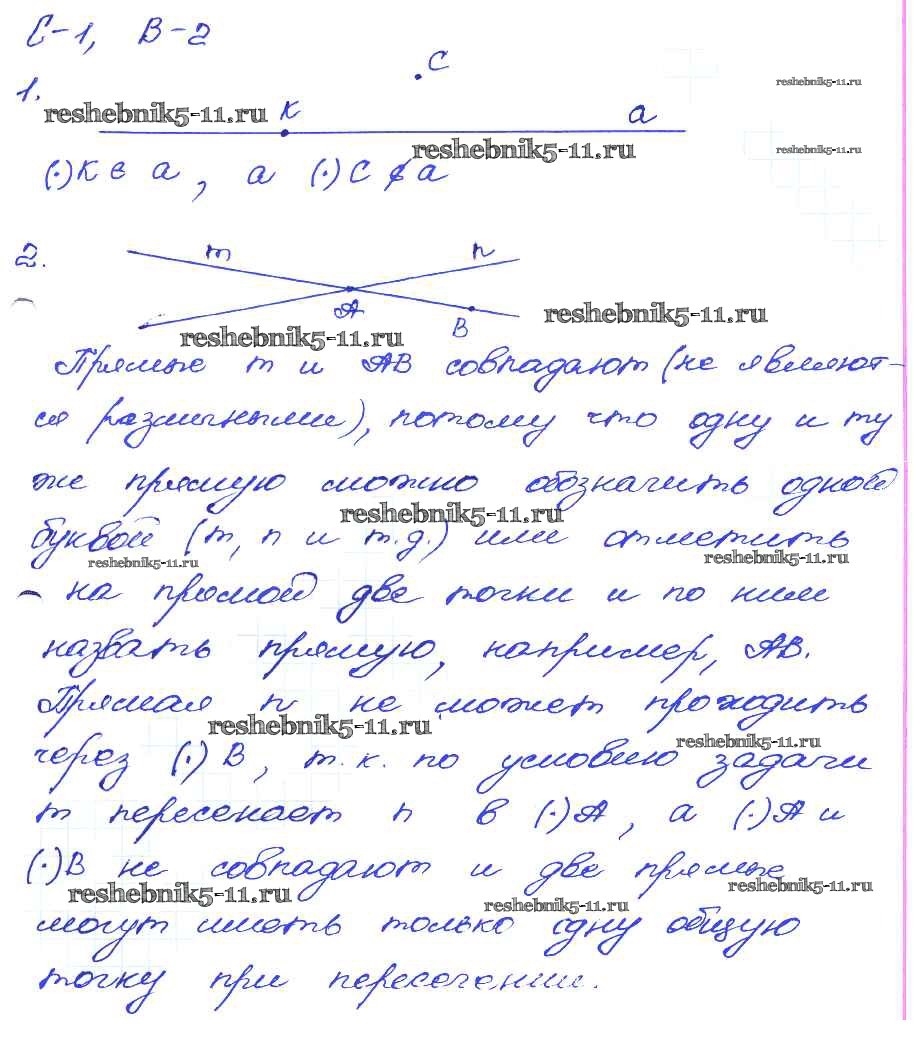 С-1, В-2
1.
С
reshebnik5-11.ru
reshebnik5-11.ru
К
а
reshebnik5-11.ru
reshebnik5-11.ru
(·)К ∈ а, а (·)С ∉ а
2.
m
n
А
В
reshebnik5-11.ru
reshebnik5-11.ru
Прямые m и АВ совпадают (не являют-
ся различными), потому что одну и ту
же прямую можно обозначить одной
reshebnik5-11.ru
буквой (m, n и т.д.) или отметить
reshebnik5-11.ru
reshebnik5-11.ru
на прямой две точки и по ним
назвать прямую, например, АВ.
Прямая n не может проходить
reshebnik5-11.ru
reshebnik5-11.ru
через (·) В, т.к. по условию задачи
m пересекает n в (·)А, а (·)А и
(·)В не совпадают и две прямые
reshebnik5-11.ru
reshebnik5-11.ru
reshebnik5-11.ru
могут иметь только одну общую
точку при пересечении.